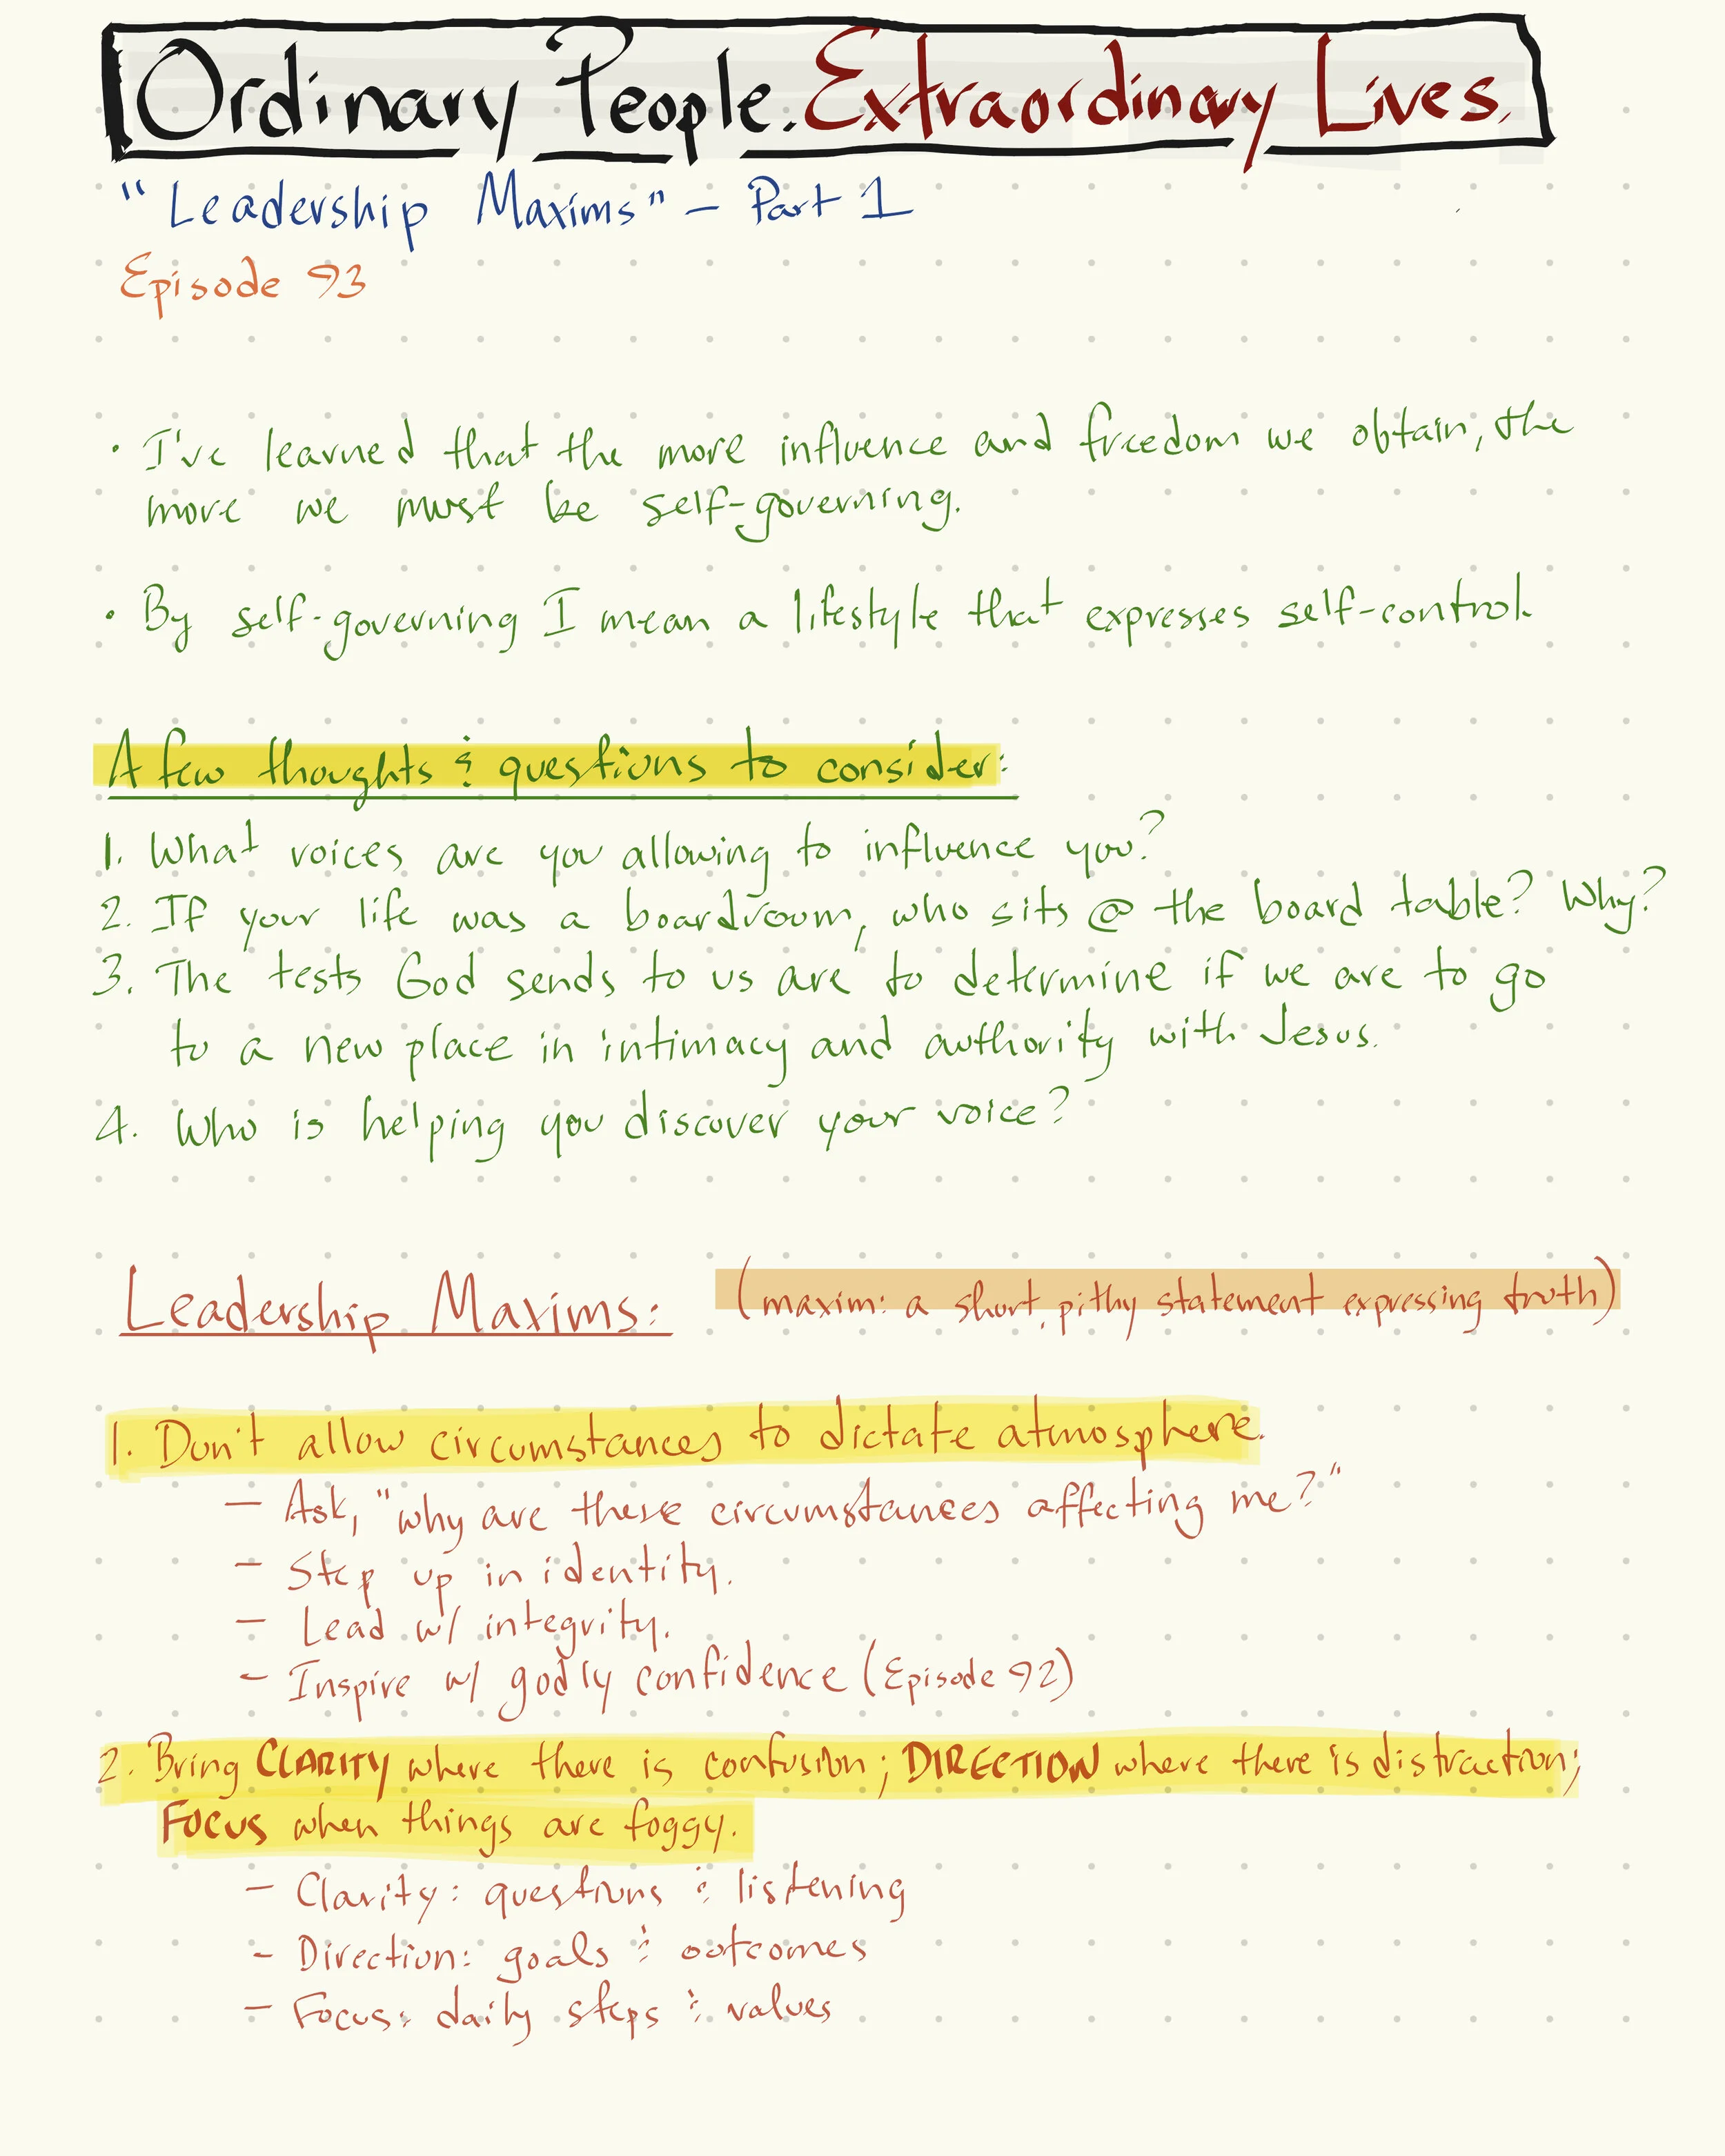 Ordinary People. Extraordinary Lives.
"Leadership Maxims" - Part 1
Episode 93
• I've learned that the more influence and freedom we obtain, the
more we must be self-governing.
• By self-governing I mean a lifestyle that expresses self-control.
A few thoughts & questions to consider:
1. What voices are you allowing to influence you?
2. If your life was a boardroom, who sits @ the board table? Why?
3. The tests God sends to us are to determine if we are to go
to a new place in intimacy and authority with Jesus.
4. Who is helping you discover your voice?
Leadership Maxims: (maxim: a short, pithy statement expressing truth)
1. Don't allow circumstances to dictate atmosphere.
- Ask, "why are these circumstances affecting me?"
- Step up in identity.
- Lead w/ integrity.
- Inspire w/ godly confidence (Episode 92)
2. Bring CLARITY where there is confusion; DIRECTION where there is distraction;
FOCUS when things are foggy.
- Clarity: questions & listening
- Direction: goals & outcomes
- Focus: daily steps & values